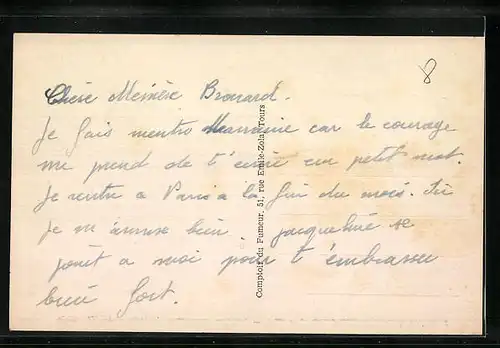 8
Chère Mémère Brouard.
Je fais mentir Marraine car le courage
me prend de t'écrire un petit mot.
Je rentre a Paris a la fin du mois. Ici
je m'amuse bien. jacqueline se
joint a moi pour t'embrasser
bien fort.
Comptoir du Fumeur, 51, rue Emile-Zola, Tours